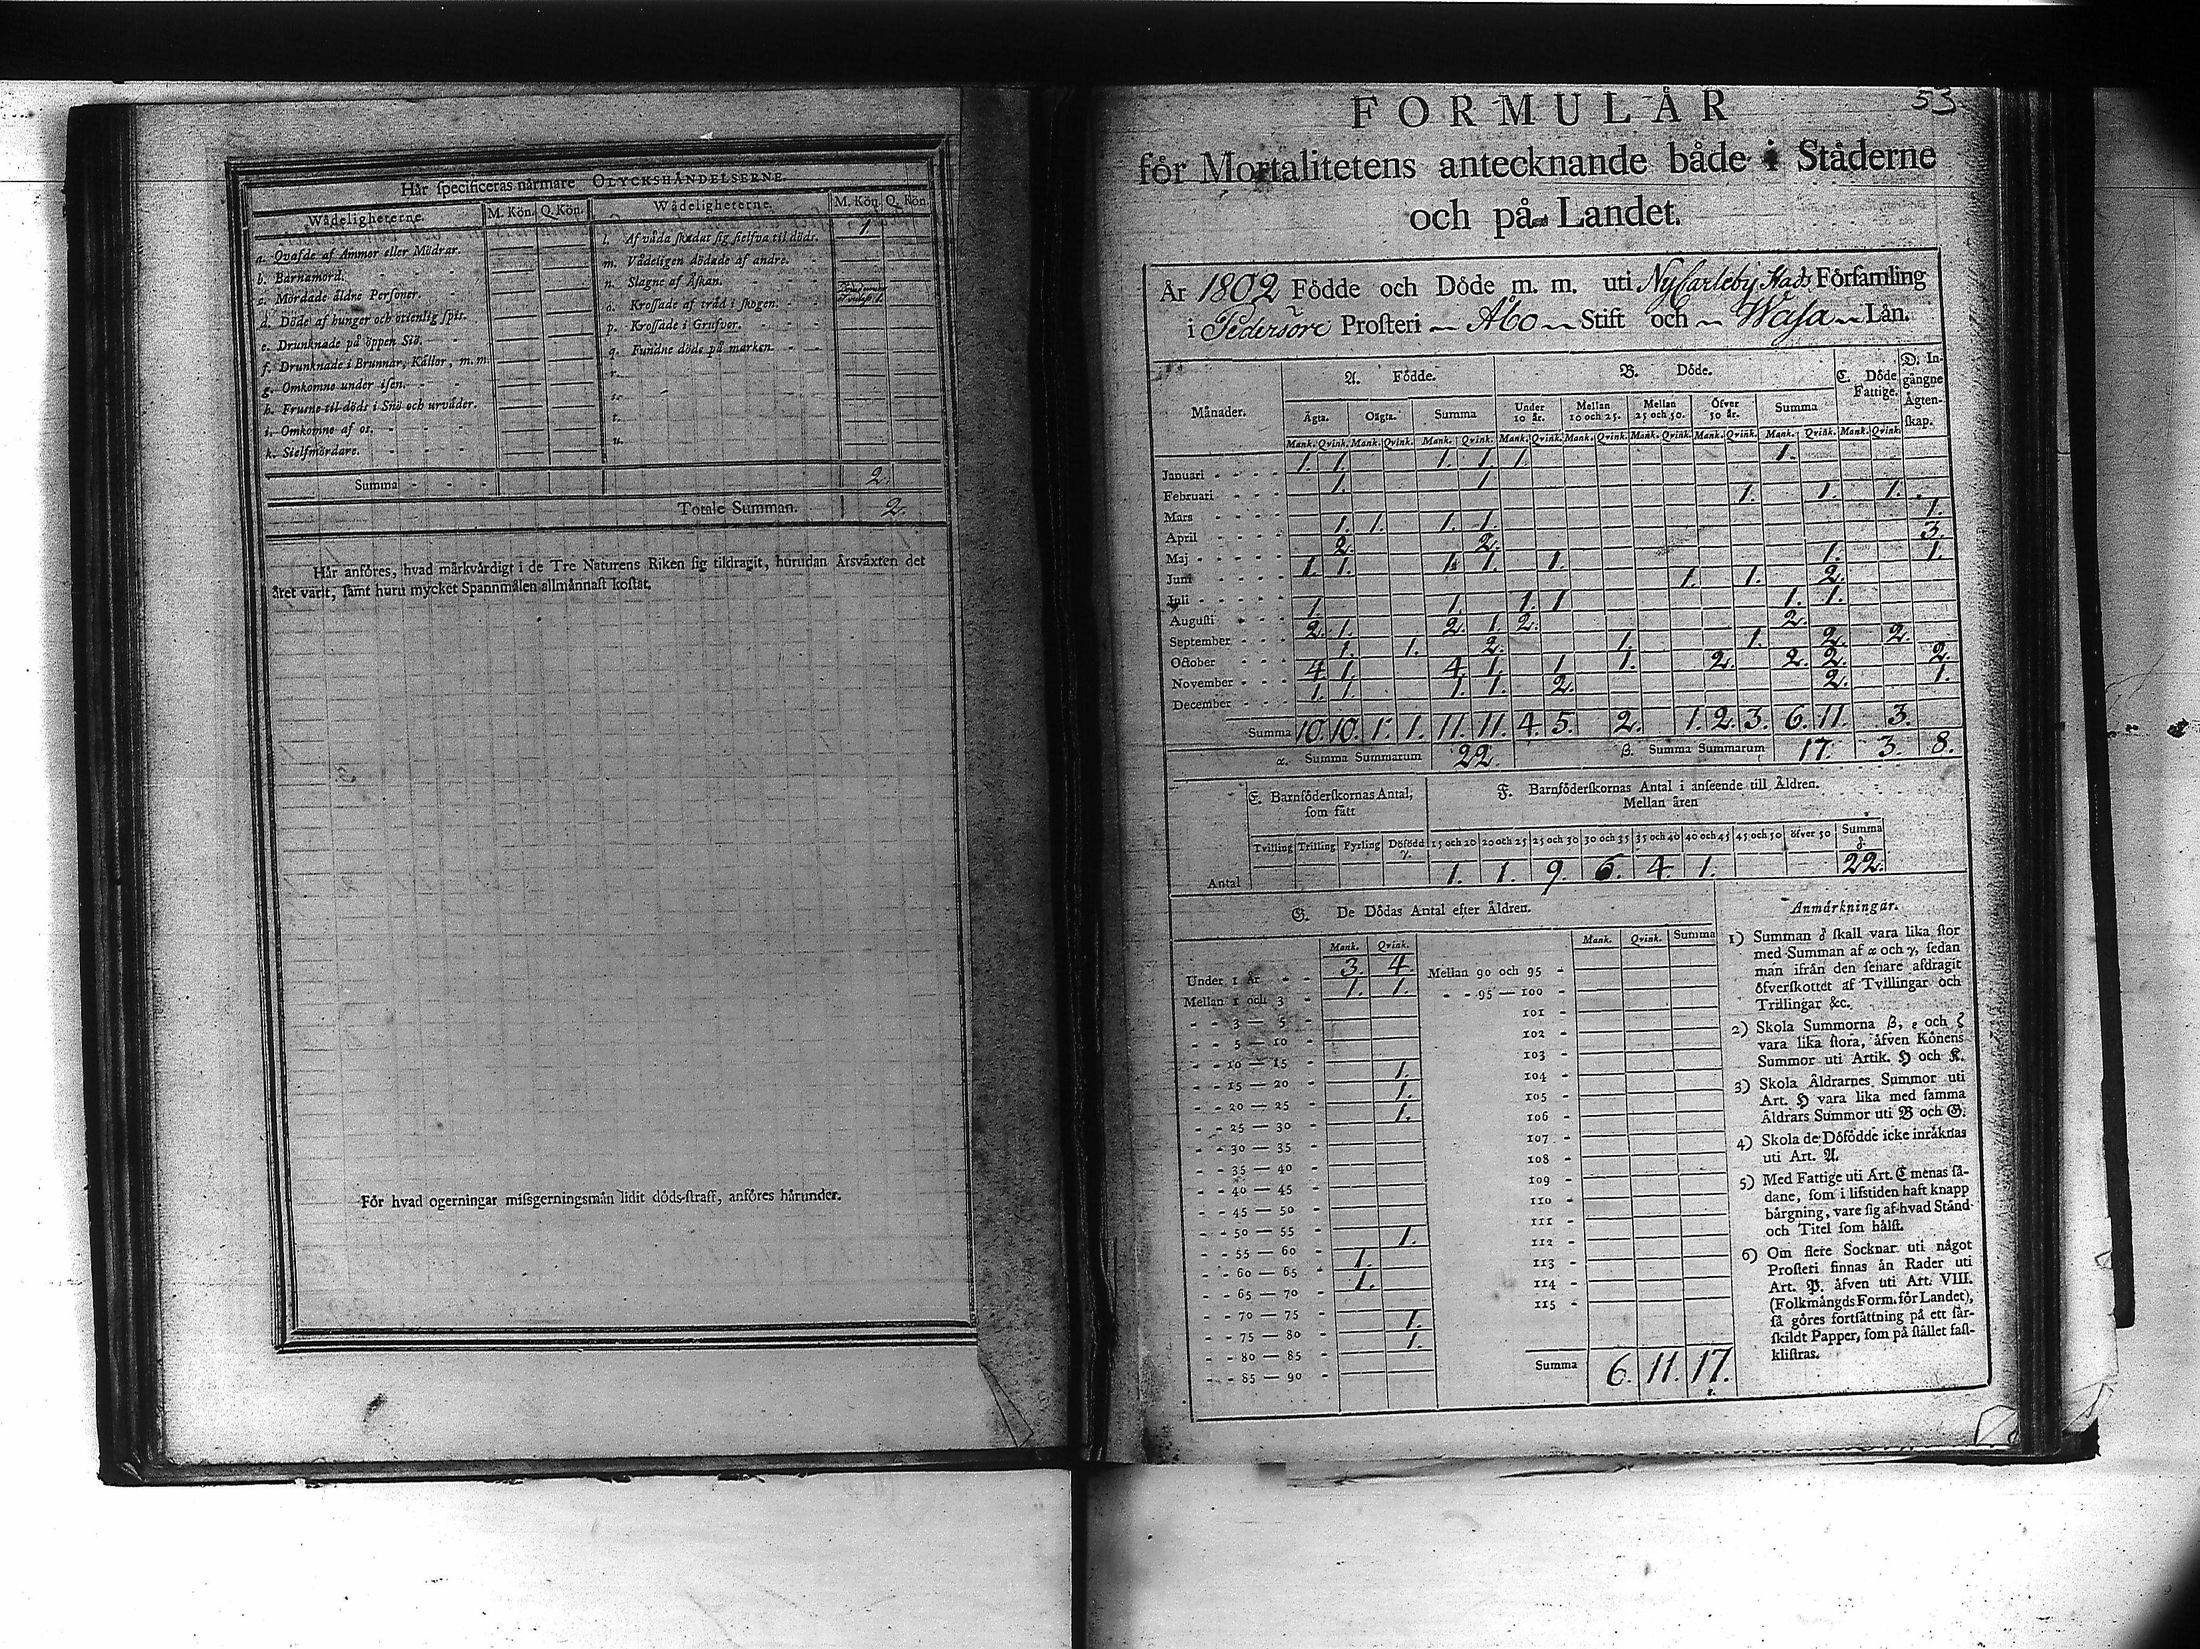 Hår ſpecificeras nårmare OLYCKSHÅNDELSERNE.
Wådeligheterne. M. Kön. Q. Kön. Wådeligheterne. M. Kön. Q. Kön.
a. Qvafde af Ammor eller Mödrar.
b. Barnamord.
c. Mördade åldre Perſoner.
d. Döde af hunger och otienlig ſpis.
e. Drunknade på öppen Siö.
f. Drunknade i Brunnar, Källor, m. m.
g. Omkomne under iſen.
h. Fruſne til döds i Snö och urväder.
i. Omkomne af os.
k. Sielfmördare.
l. Af våda ſkadat ſig ſielfva til döds. 1
m. Vådeligen dödade af andre.
n. Slagne af Åſkan.
o. Kroſſade af träd i ſkogen.
p. Kroſſade i Grufvor.
q. Fundne döde på marken.
r.
s.
t.
u.
Summa 2.
Totale Summan. 2.
Hår anföres, hvad mårkvårdigt i de Tre Naturens Riken ſig tildragit, hurudan Årsvåxten det
året varit, ſamt huru mycket Spannmålen allmånnaſt koſtat.
För hvad ogerningar miſsgerningsmån lidit döds-ſtraff, anföres hårunder.
53
FORMULÅR
för Mortalitetens antecknande både i Ståderne
och på Landet.
År 1802 Födde och Döde m. m. uti NyCarleby Stads Förſamling
i Pedersöre Proſteri Åbo Stift och Waſa Lån.
Månader. A. Födde. B. Döde. C. Döde Fattige. D. Ingångne Ågtenſkap.
Ågta. Oågta. Summa Under 10 år. Mellan 10 och 25. Mellan 25 och 50. Öfver 50 år. Summa
Mank. Qvink. Mank. Qvink. Mank. Qvink. Mank. Qvink. Mank. Qvink. Mank. Qvink. Mank. Qvink. Mank. Qvink. Mank. Qvink.
Januari 1. 1. 1. 1. 1. 1.
Februari 1. 1.
Mars 1. 1. 1.
April 1. 1. 1. 1. 1.
Maj 2. 2. 3.
Juni 1. 1. 1. 1. 1. 1. 1.
Juli 1. 1. 2.
Auguſti 1. 1. 1. 1 1. 1.
September 2. 1. 2. 1. 2. 2.
October 1. 1. 2. 1. 1. 2. 2.
November 4. 1. 4. 1. 1 1. 2. 2. 2. 2.
December 1. 1. 1. 1. 2. 2. 1.
Summa 10. 10. 1. 1. 11. 11. 4. 5. 2. 1. 2. 3. 6. 11. 3.
α. Summa Summarum 22. β. Summa Summarum 17. 3. 8.
E. Barnföderſkornas Antal, ſom fått
F. Barnföderſkornas Antal i anſeende till Åldren.
Mellan åren
Tvilling Trilling Fyrling Döfödd γ. 15 och 20 20 och 25 25 och 30 30 och 35 35 och 40 40 och 45 45 och 50 öfver 50 Summa δ
Antal 1. 1. 9. 6. 4. 1. 22.
G. De Dödas Antal efter Åldren.
Mank. Qvink. Mank. Qvink. Summa
Under 1 år 3. 4.
Mellan 1 och 3 1. 1.
3 — 5
5 — 10
10 — 15
15 — 20 1.
20 — 25 1.
25 — 30 1.
30 — 35
35 — 40
40 — 45
45 — 50
50 — 55
55 — 60 1.
60 — 65 1.
65 — 70 1.
70 — 75
75 — 80 1.
80 — 85 1.
85 — 90
Mellan 90 och 95
95 — 100
101
102
103
104
105
106
107
108
109
110
111
112
113
114
115
Summa 6. 11. 17.
Anmårkningar.
1) Summan δ ſkall vara lika ſtor
med Summan af α och γ, ſedan
man ifrån den ſenare afdragit
öfverſkottet af Tvillingar och
Trillingar &c.
2) Skola Summorna β, ε och ζ
vara lika ſtora, åfven Könens
Summor uti Artik. H och K.
3) Skola Åldrarnes Summor uti
Art. H vara lika med ſamma
Åldrars Summor uti B och G.
4) Skola de Döfödde icke inråknas
uti Art. A.
5) Med Fattige uti Art. C menas ſådane,
ſom i lifstiden haft knapp
bårgning, vare ſig af hvad Stånd
och Titel ſom hålſt.
6) Om flere Socknar uti något
Proſteri finnas ån Rader uti
Art. P. åfven uti Art. VIII.
(Folkmångds Form. för Landet),
ſå göres fortſåttning på ett ſårſkildt
Papper, ſom på ſtållet faſtkliſtras.